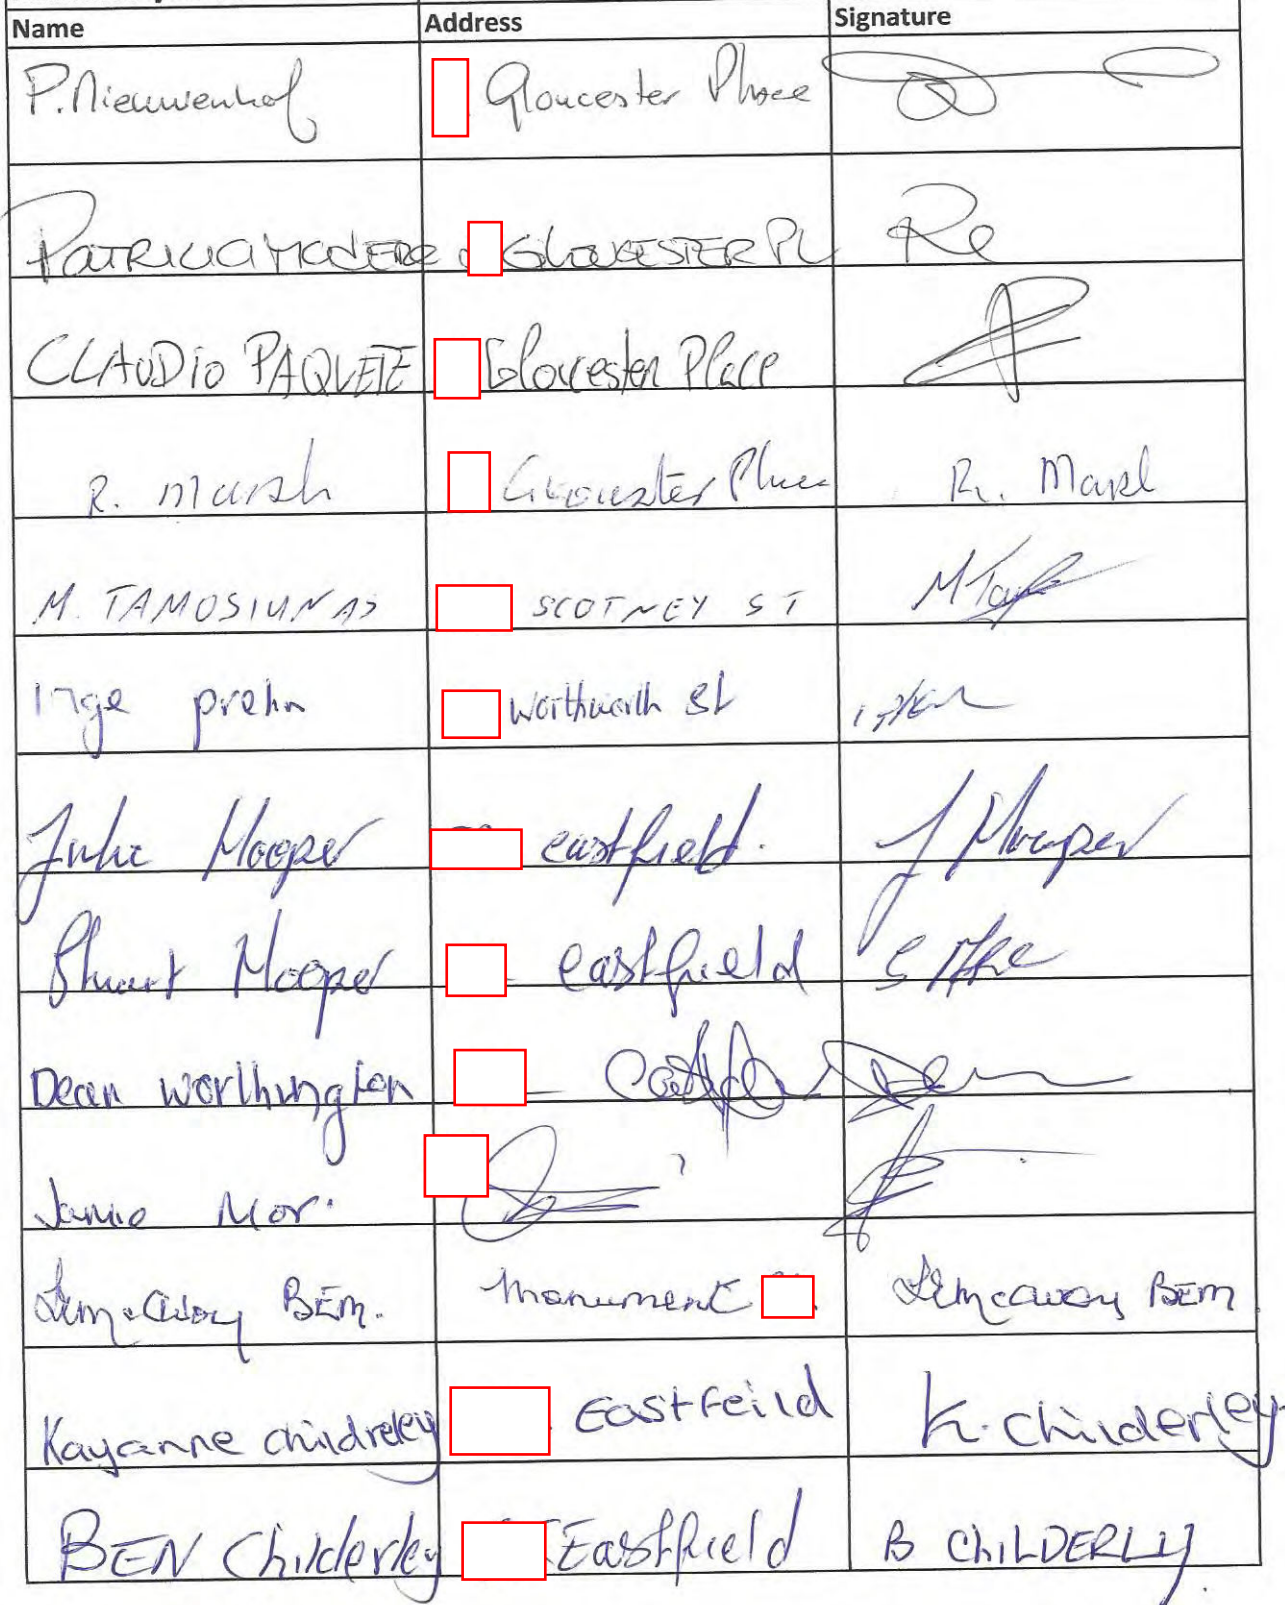 Name Address Signature
P. Nieuwenhof Gloucester Place
PATRICIA GLOUCESTER PL
CLAUDIO PAQUETE Gloucester Place
R. Marsh Gloucester Place R. Marsh
M. TAMOSIUNAS SCOTNEY ST
Inge prehn worthworth St
Julie Hooper eastfield. J Hooper
Stuart Hooper eastfield
Dean Worthington
Jamie Mor
BEM. Monument BEM
Kayanne Childreley Eastfeild K. Childerley
BEN Childerley Eastfield B CHILDERLY